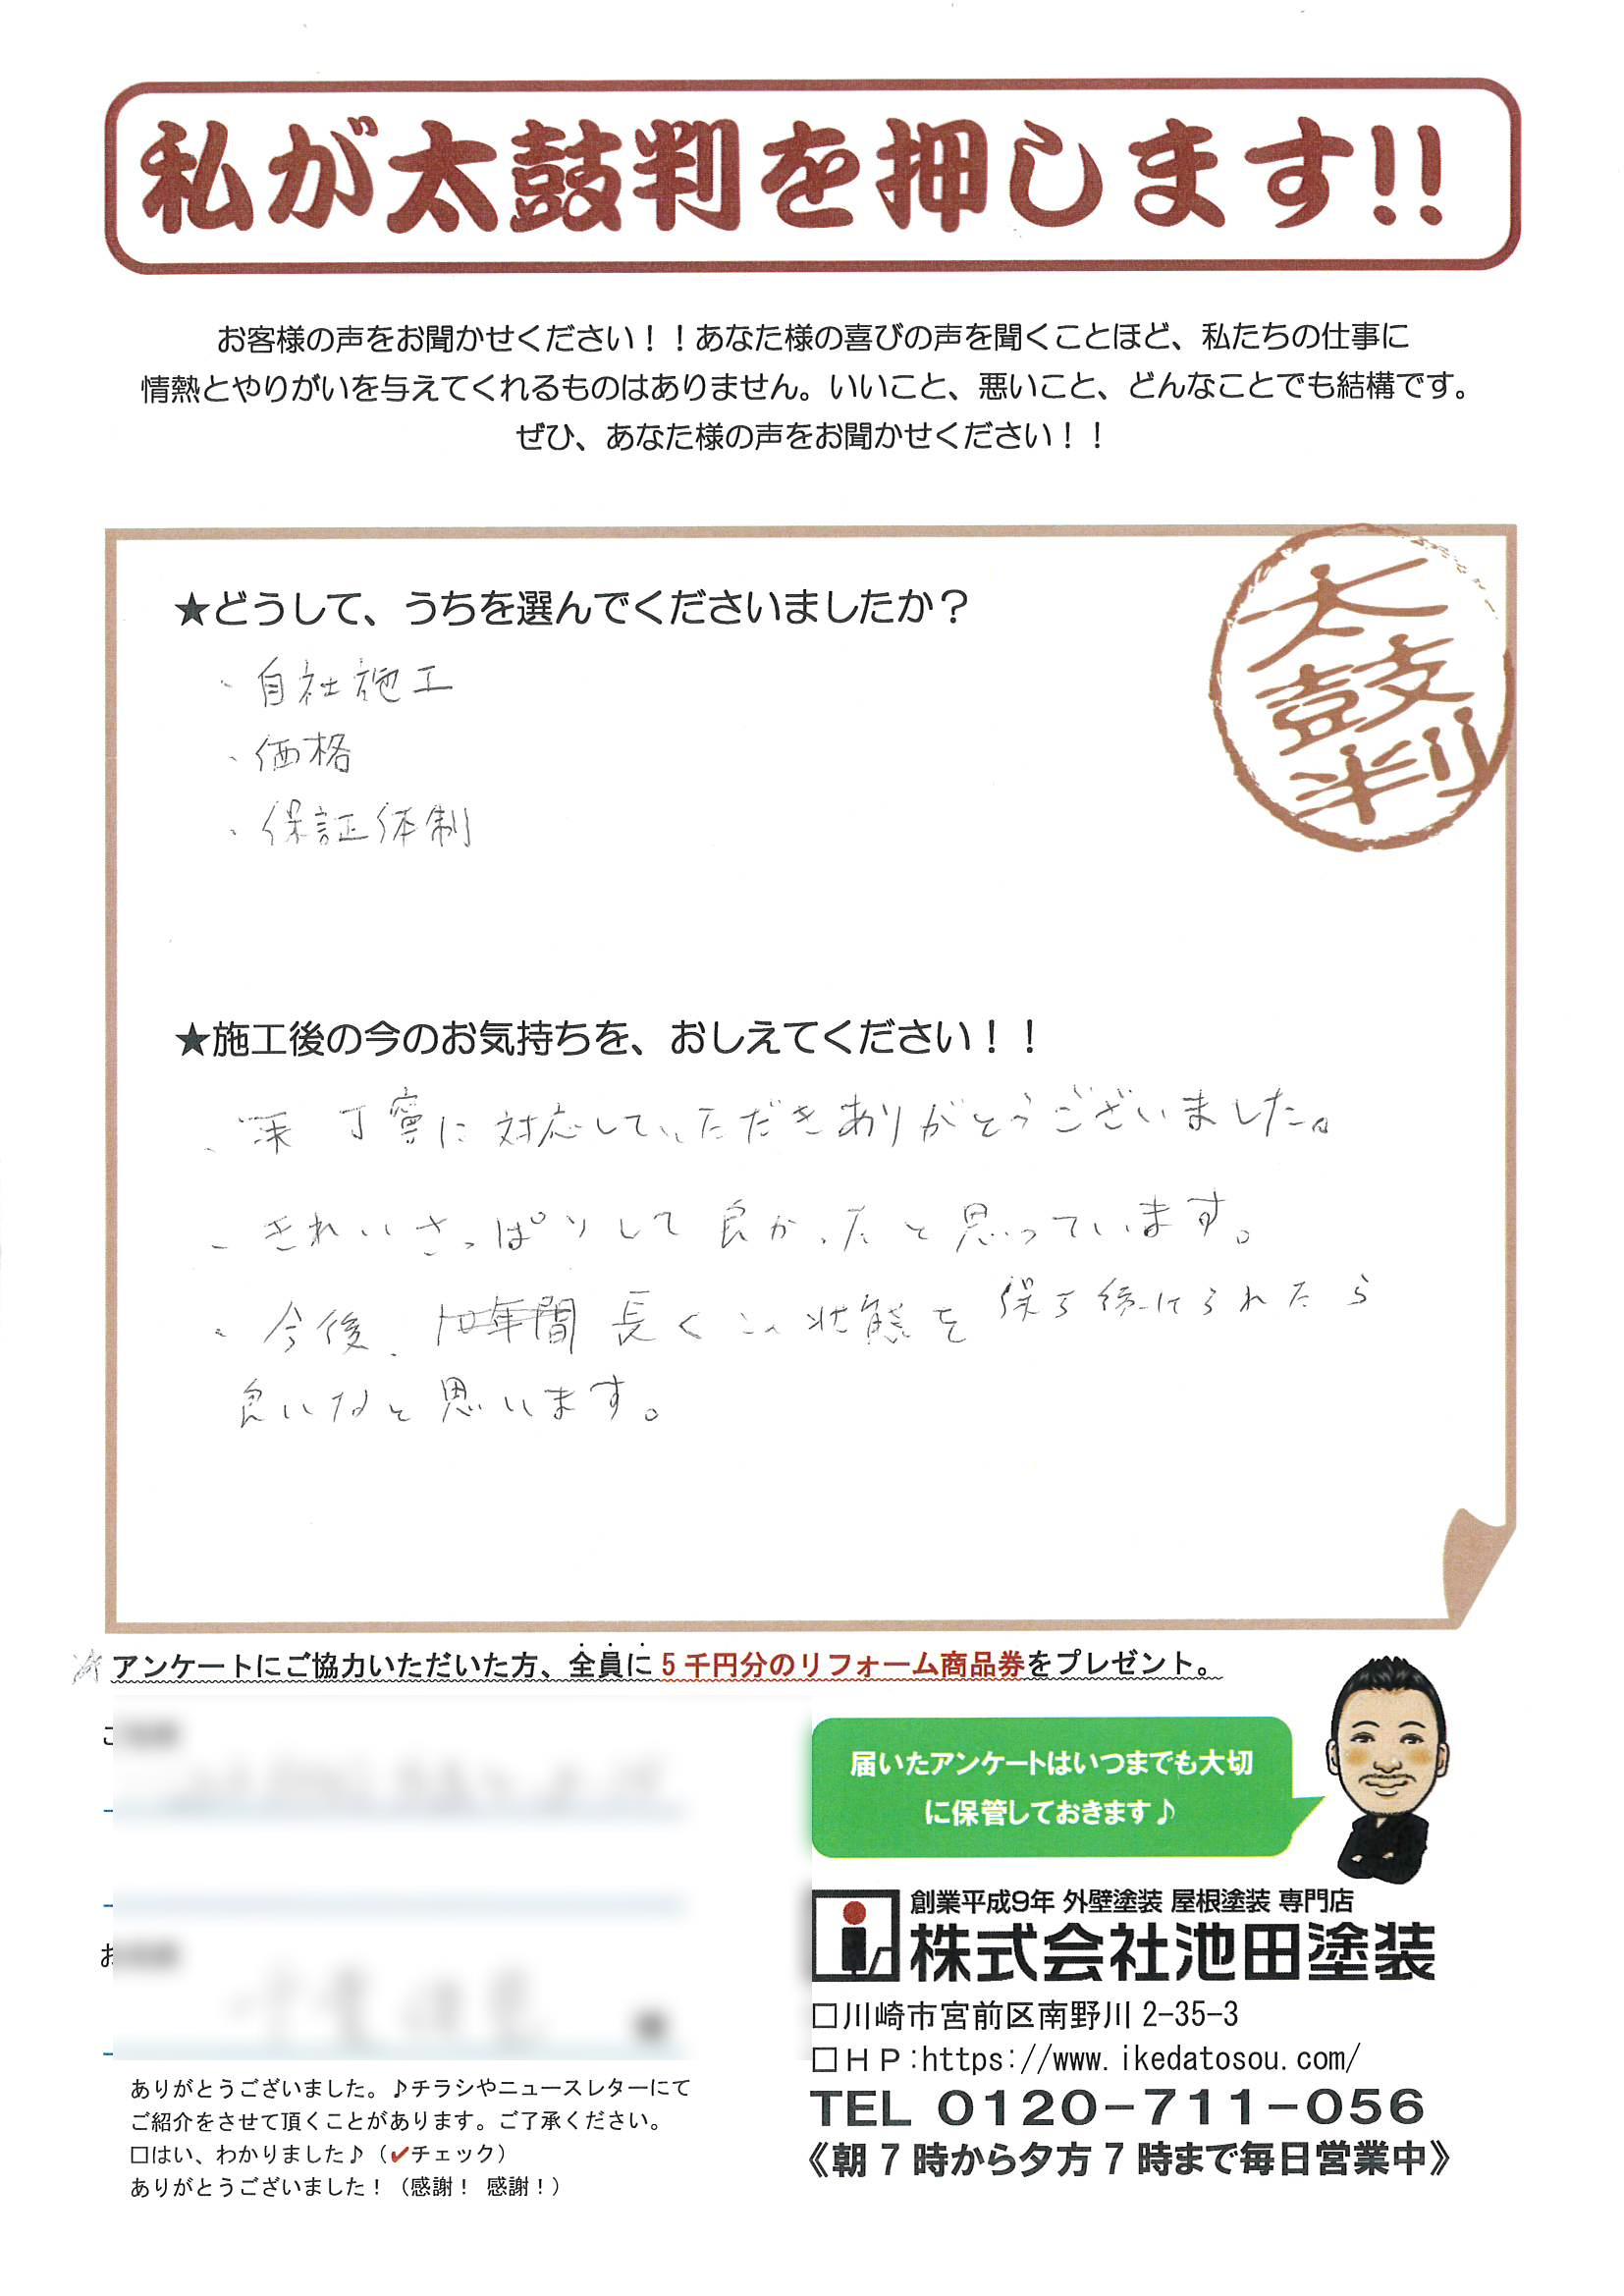 私が太鼓判を押します!!
お客様の声をお聞かせください！！あなた様の喜びの声を聞くことほど、私たちの仕事に
情熱とやりがいを与えてくれるものはありません。いいこと、悪いこと、どんなことでも結構です。
ぜひ、あなた様の声をお聞かせください！！
太鼓判
★どうして、うちを選んでくださいましたか？
・自社施工
・価格
・保証体制
★施工後の今のお気持ちを、おしえてください！！
丁寧に対応していただきありがとうございました。
・きれいさっぱりして良かったと思っています。
・今後、10年間長くこの状態を保ち続けられたら
良いなと思います。
アンケートにご協力いただいた方、全員に5千円分のリフォーム商品券をプレゼント。
届いたアンケートはいつまでも大切
に保管しておきます♪
創業平成9年 外壁塗装 屋根塗装 専門店
株式会社池田塗装
□川崎市宮前区南野川2-35-3
□ＨＰ:https://www.ikedatosou.com/
TEL 0120-711-056
《朝7時から夕方7時まで毎日営業中》
ありがとうございました。♪チラシやニュースレターにて
ご紹介をさせて頂くことがあります。ご了承ください。
□はい、わかりました♪（✔チェック）
ありがとうございました！（感謝！ 感謝！）